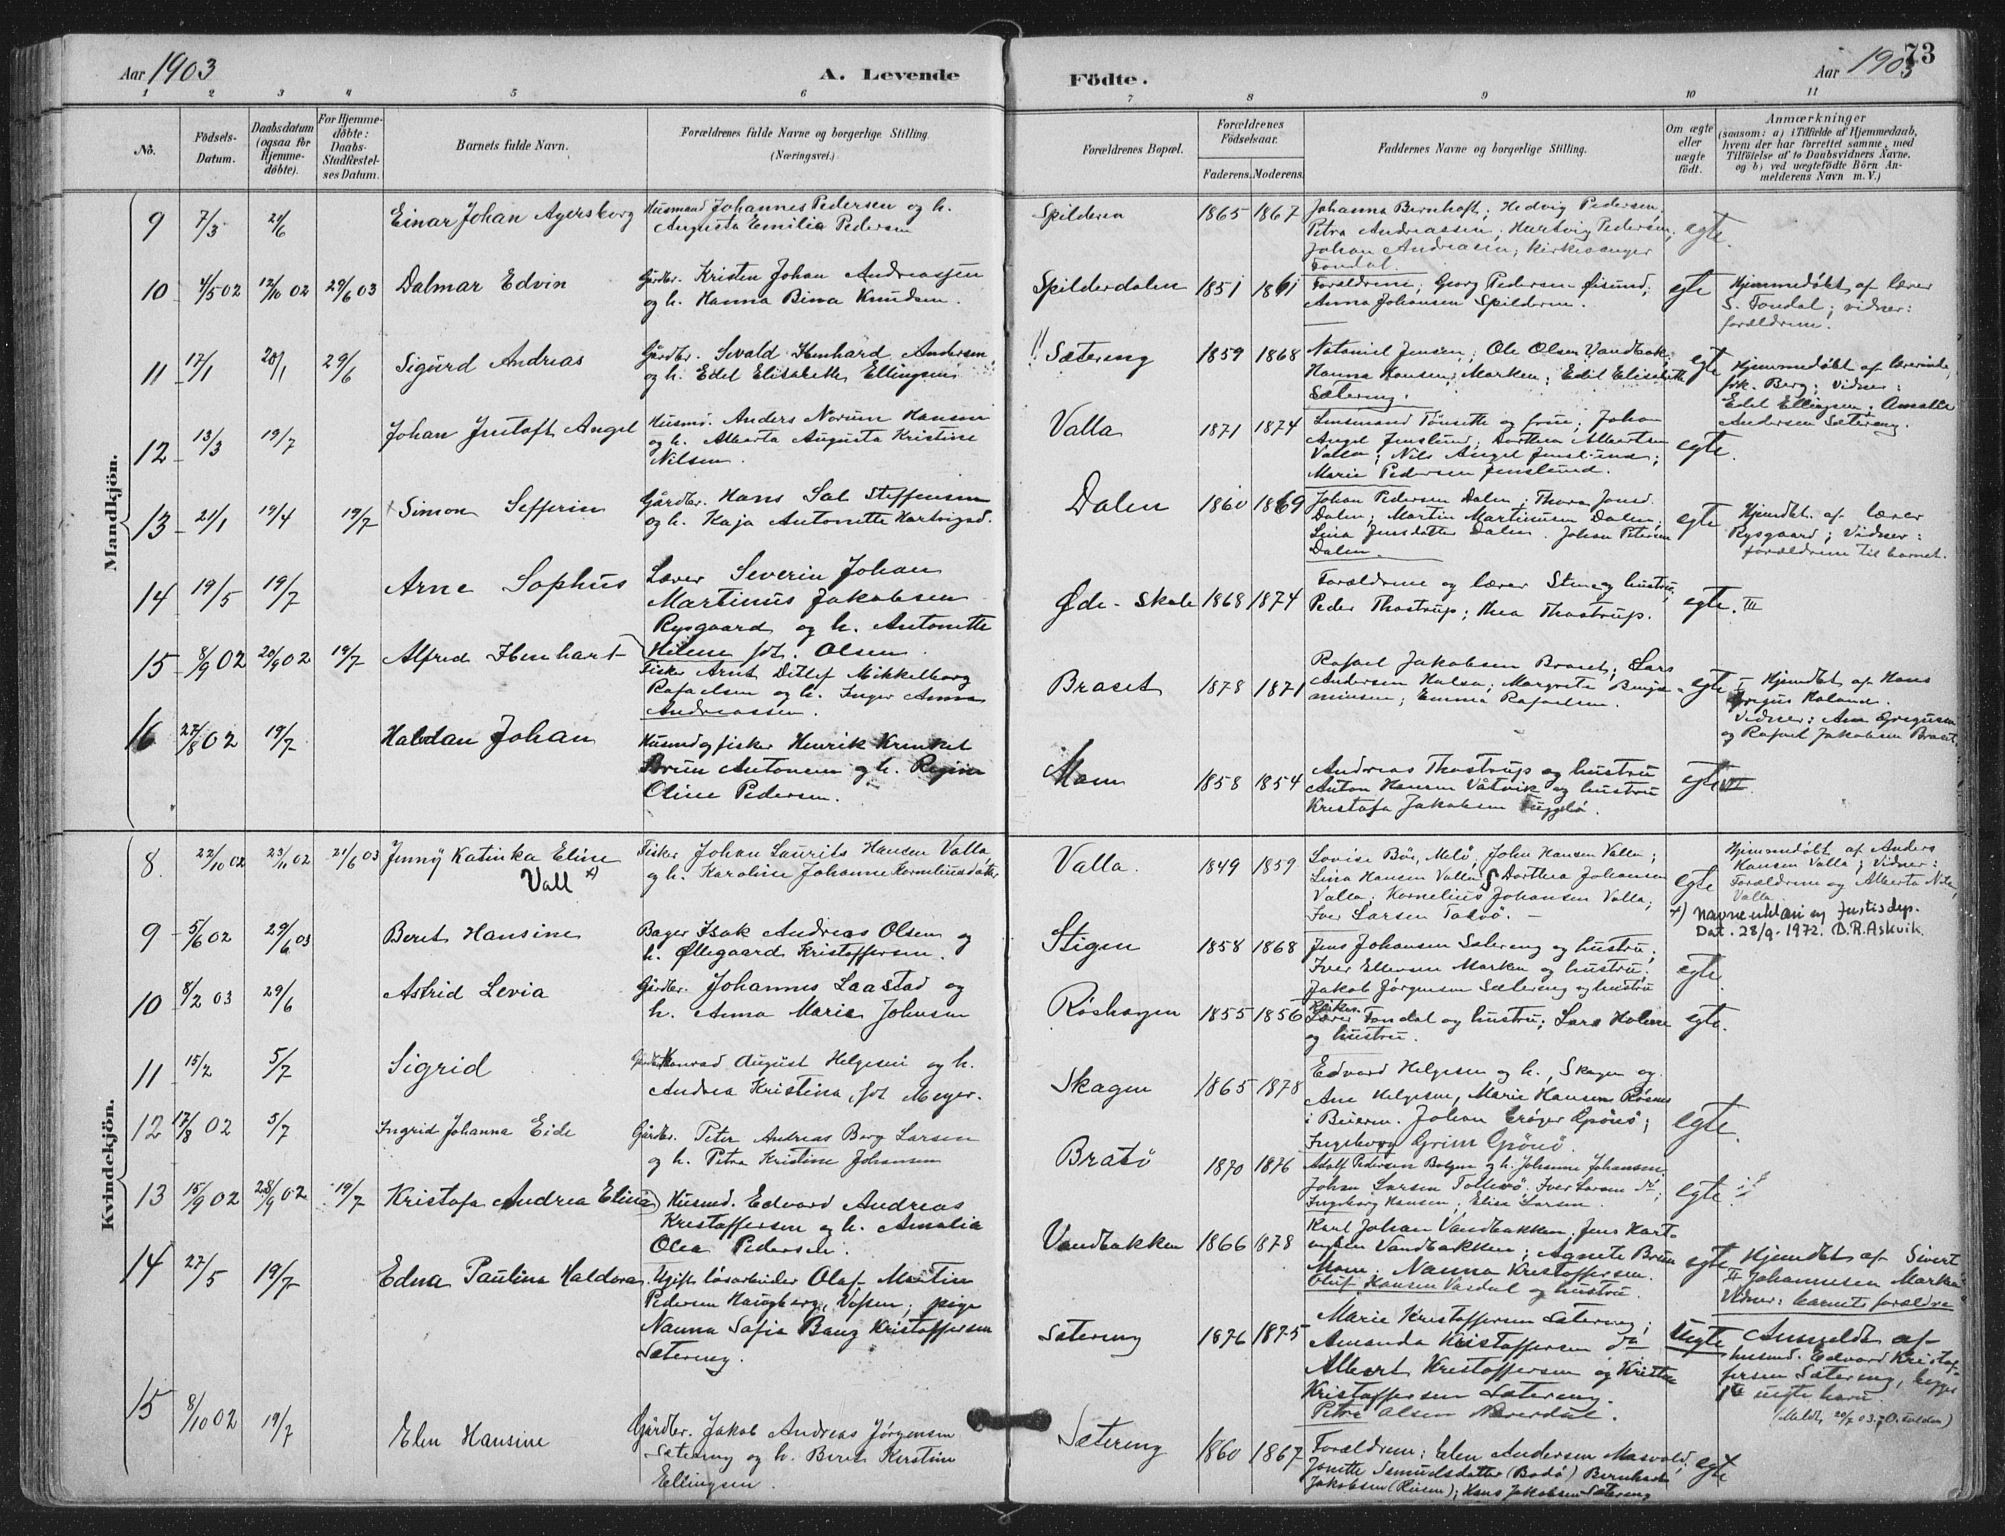 Aar 1903
A. Levende
Födte.
Aar 1903
73
1 2 3 4 5 6 7 8 9 10 11
No.
Födsels-
Datum.
Daabsdatum
(ogsaa for
Hjemme-
döbte).
For Hjemme-
döbte:
Daabs-
Stadfæstel-
ses Datum.
Barnets fulde Navn.
Forældrenes fulde Navne og borgerlige Stilling.
(Næringsvei.)
Forældrenes Bopæl.
Forældrenes
Födselsaar.
Faderens. Moderens.
Faddernes Navne og borgerlige Stilling.
Om ægte
eller
uægte
födt.
Anmærkninger
(saasom: a) i Tilfælde af Hjemmedaab,
hvem der har forrettet samme, med
Tilföielse af to Daabsvidners Navne.
og b) ved uægtefödte Börn An-
melderens Navn m. V.)
Mandkjön.
9 7/3 21/6 Einar Johan Agersborg
Husmand Johannes Pedersen og h.
Augusta Emilie Pedersen
Spilderen 1865 1867
Johanna Bernhoft; Hedvig Pedersen,
Petra Andreassen; Hartvig Pedersen,
Johan Andreasen; Kirkesanger
Tondal.
egte.
10 4/5 02 12/10 02 29/6 03 Dalmar Edvin
Gårdbr. Kristen Johan Andreassen
og h. Hanna Bina Knudsen.
Spilderdalen 1851 1861
Forældrene; Georg Pedersen Øisund;
Anna Johansen Spilderen.
egte
Hjemmedøbt af lærer
S. Tondal; vidner:
forældrene.
11 17/1 28/1 29/6 Sigurd Andreas
Gårdbr. Sevald Henhard Andersen
og h. Edel Elisabeth Ellingsen
Sætereng 1859 1868
Nataniel Jensen; Ole Olsen Vandbak;
Hanna Hansen Marken; Edel Elisabeth
Sætereng.
egte
Hjemmedøbt af lærerinde
frk. Berg; vidner:
Edel Ellingsen; Amalie
Andersen Sætereng.
12 13/3 19/7 Johan Justoft Angel
Husm. Anders Norum Hansen
og h. Alberta Augusta Kristine
Nilsen.
Valla 1871 1874
Lensmand Tønsette og frue; Johan
Angel Jenslund; Dorthea Albertsen
Valla; Nils Angel Jenslund;
Marie Pedersen Jenslund.
egte.
13 21/1 19/4 19/7 Simon Sefferin
Gårdbr. Hans Sal Steffensen
og h. Kaja Antonette Hartvigsd.
Dalen 1860 1869
Johan Pedersen Dalen; Thora Jonsd.
Dalen; Martin Martinusen Dalen;
Lina Jensdatter Dalen. Johan Petersen
Dalen.
egte
Hjemdbt. af lærer
Rysgaard; Vidner:
forældrene til barnet.
14 19/5 19/7 Arne Sophus
Lærer Severin Johan
Martinus Jakobsen
Rysgaard og h. Antonette
Helene fdt. Olsen.
Øde-Skole 1868 1874
Forældrene og lærer Steen og hustru,
Peder Thostrup; Thea Thostrup.
egte. III
15 8/9 02 20/9 02 19/7 Alfred Henhart
Fisker Arnt Ditlef Mikkelborg
Rafaelsen og h. Inger Anna
Andreassen.
Braset 1878 1871
Rafael Jakobsen Braset; Lars
Andersen Halsa; Margrete Benja-
minsen; Emma Rafaelsen.
egte
Hjemdbt af Hans
Gregus Holand.
Vidner: Ane Gregusen
og Rafael Jakobsen Braset.
16 27/8 02 19/7 Halvdan Johan
Husmd og fisker Henrik Krinkel
Brun Antonsen og h. Regine
Oline Pedersen.
Mosen 1858 1854
Andreas Thostrup og hustru
Anton Hansen Våtvik og hustru
Kristofa Jakobsen
egte VI
Kvindekjön.
8. 22/10 02 23/11 02 21/6 03 Jenny Katinka Eline
Vall x)
Fisker Johan Laurits Hansen Valla
og h. Karoline Johanne Korneliusdatter
Valla. 1849 1859
Lovise Bøe, Melø, John Hansen Valla;
Lina Hansen Valla; Dorthea Johansen
Valla. Kornelius Johansen Valla;
Iver Larsen
egte
Hjemmedøbt af Anders
Hansen Valla; Vidner:
Forældrene og Alberta Nils.
Valla
x) Navneendring Justisdep.
Dat. 28/9-1972. D.R. Askvik.
9 5/6 02 29/6 03 Beret Hansine
Bager Isak Andreas Olsen og
h. Øllegaard Kristoffersen.
Stigen 1858 1868
Jens Johansen Sætereng og hustru;
Iver Ellensen Marken og hustru.
Jakob Jørgensen Sætereng og hustru
egte.
10 8/2 03 29/6 Astrid Levia
Gårdbr. Johannes Laastad og
h. Anna Marie Johnsen
Røshagen 1855 1856
Lærer Tondal og hustru; Lars Holme
og hustru.
egte.
11 15/2 5/7 Sigrid
Gårdbr Konrad August Helgesen og h.
Andrea Kristina, fdt Meyer.
Skagen 1865 1878
Edvard Helgesen og h., Skagen og
Ane Helgesen, Marie Hansen Røsnes
i Beieren. Johan Grønø;
Ingeborg Grim Grønø.
egte.
12 17/8 02 5/7 Ingrid Johanna Eide
Gårdbr. Peter Andreas Berg Larsen
og h. Petra Kristine Johansen
Bratø 1870 1876
Adolf Pedersen Bolgen og h. Johanne Johansen,
Johan Larsen Tollevø. Iver Larsen do;
Ingeborg Hansen; Elise Larsen.
egte.
13 15/9 02 28/9 02 19/7 Kristofa Andrea Elina
Husmd. Edvard Andreas
Kristoffersen og h. Amalia
Olea Pedersen.
Vandbakken 1866 1878
Karl Johan Vandbakken, Jens Hart-
vigsen Vandbakken; Agnete Brun
Mosen; Nanna Kristoffersen.
Oluf Hansen Værdal og hustru.
egte
Hjemdbt af Sivert
Johannesen Marken
Vidner: barnets forældre
14 27/5 19/7 Edna Paulina Haldora
Ugift løsarbeider Olaf Martin
Pedersen Haugberg, Vefsen; pige
Nanna Sofia Bang Kristoffersen
Sætereng.
Sætereng 1876 1875
Marie Kristoffersen Sætereng;
Amanda Kristoffersen do
Albert Kristoffersen og Kristen
Kristoffersen Sætereng.
Petra Olsen Neverdal.
Uegte
Anmeldt af
husmd. Edvard Kristof-
fersen Sætereng, begges
1ste uegte barn.
(Meldt 20/7 03. )
15 8/10 02 19/7 Elen Hansine
Gårdbr. Jakob Andreas Jørgensen
Sætereng og h. Beret Kerstine
Ellingsen.
Sætereng 1860 1867
Forældrene; Elen Andersen Masvold;
Jonette Samuelsdatter (Bodø) Bernhard
Jakobsen (Risen); Hans Jakobsen Sætereng
egte